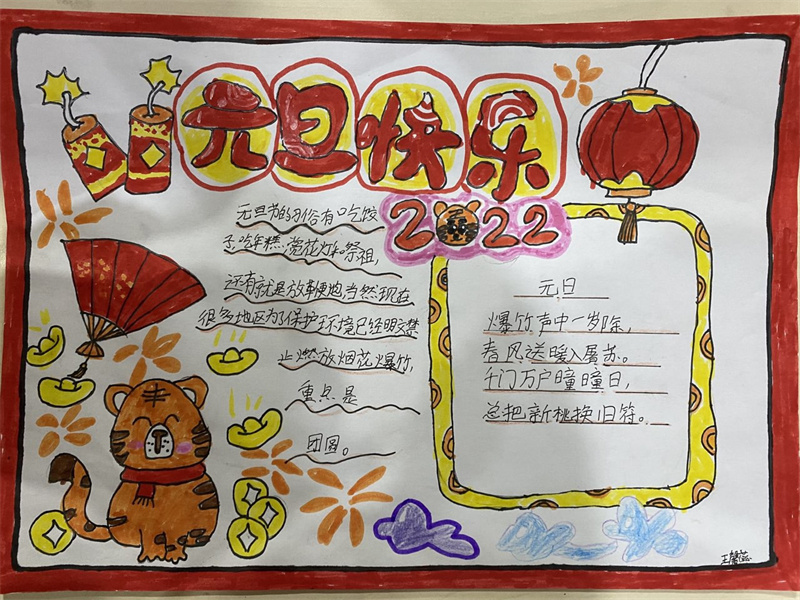 元旦快乐
2022
元旦节的习俗有吃饺
子,吃年糕,赏花灯和祭祖,
还有就是放鞭炮,当然,现在
很多地区为了保护环境已经明文禁
止燃放烟花爆竹,
重点是
团圆。
元旦
爆竹声中一岁除,
春风送暖入屠苏。
千门万户曈曈日,
总把新桃换旧符。